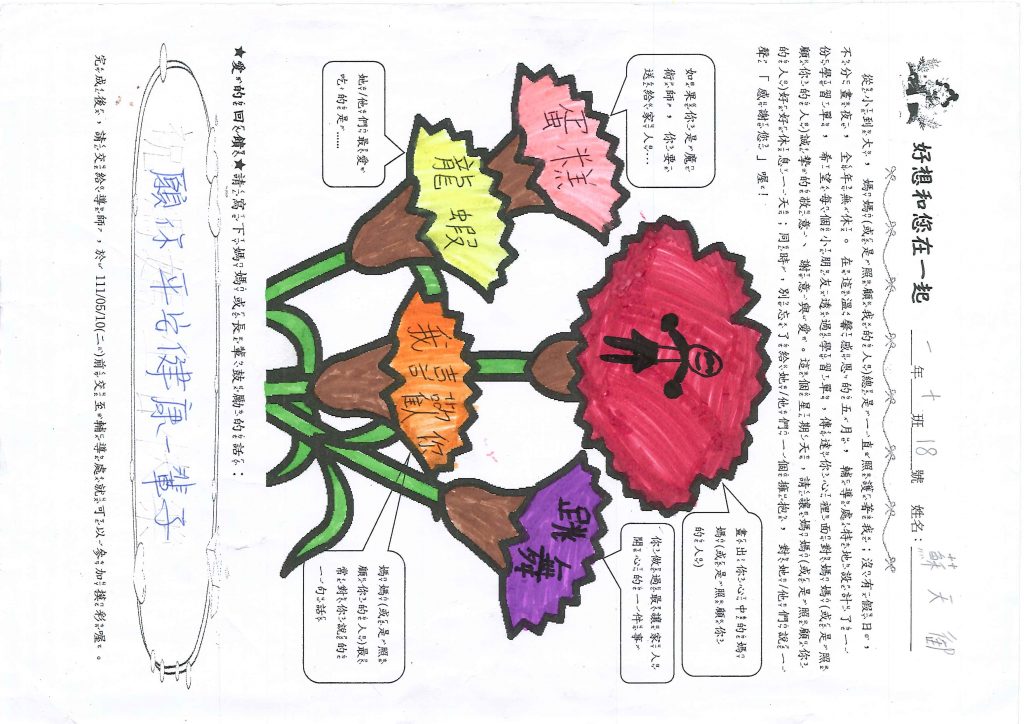 好想和您在一起 一年十班18號 姓名：蘇天御
從小到大，媽媽(或是照顧我的人)總是一直照護著我；沒有假日，
不分晝夜，全年無休。在這溫馨感恩的五月，輔導處特地設計了一
份學習單，希望每個小朋友透過學習單，傳達你心裡面對媽媽(或是照
顧你的人)誠摯的敬意、謝意與愛。這個星期天，請讓媽媽(或是照顧你
的人)好好休息一天；同時，別忘了給她/他們一個擁抱，對她/他們說一
聲「感謝您」喔！
如果你是魔
術師，你要
送給家人…
蛋糕
畫出你心中的媽
媽(或是照顧你
的人)
她/他們最愛
吃的是……
龍蝦
我喜歡你
跳舞
你做過最讓家人
開心的一件事
媽媽(或是照
顧你的人)最
常對你說的
一句話
★愛的回饋★請寫下媽媽或長輩鼓勵的話：
願你平安健康一輩子
完成後，請交給導師，於111/05/10(二)前交至輔導處就可以參加摸彩喔。